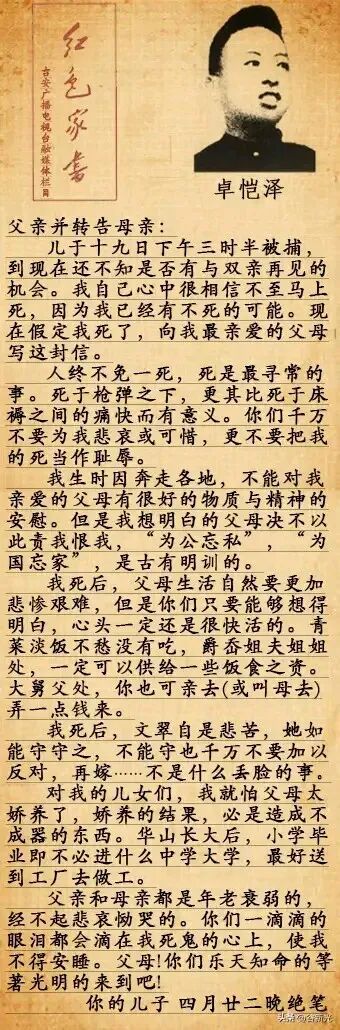 红色家书
吉安广播电视台融媒体栏目
卓恺泽
父亲并转告母亲：
儿于十九日下午三时半被捕，
到现在还不知是否有与双亲再见的
机会。我自己心中很相信不至马上
死，因为我已经有不死的可能。现
在假定我死了，向我最亲爱的父母
写这封信。
人终不免一死，死是最寻常的
事。死于枪弹之下，更其比死于床
褥之间的痛快而有意义。你们千万
不要为我悲哀或可惜，更不要把我
的死当作耻辱。
我生时因奔走各地，不能对我
亲爱的父母有很好的物质与精神的
安慰。但是我想明白的父母决不以
此责我恨我，“为公忘私”，“为
国忘家”，是古有明训的。
我死后，父母生活自然要更加
悲惨艰难，但是你们只要能够想得
明白，心头一定还是很快活的。青
菜淡饭不愁没有吃，爵岙姐夫姐姐
处，一定可以供给一些饭食之资。
大舅父处，你也可亲去(或叫母去)
弄一点钱来。
我死后，文翠自是悲苦，她如
能守守之，不能守也千万不要加以
反对，再嫁……不是什么丢脸的事。
对我的儿女们，我就怕父母太
娇养了，娇养的结果，必是造成不
成器的东西。华山长大后，小学毕
业即不必进什么中学大学，最好送
到工厂去做工。
父亲和母亲都是年老衰弱的，
经不起悲哀恸哭的。你们一滴滴的
眼泪都会滴在我死鬼的心上，使我
不得安睡。父母!你们乐天知命的等
著光明的来到吧!
你的儿子 四月廿二晚绝笔